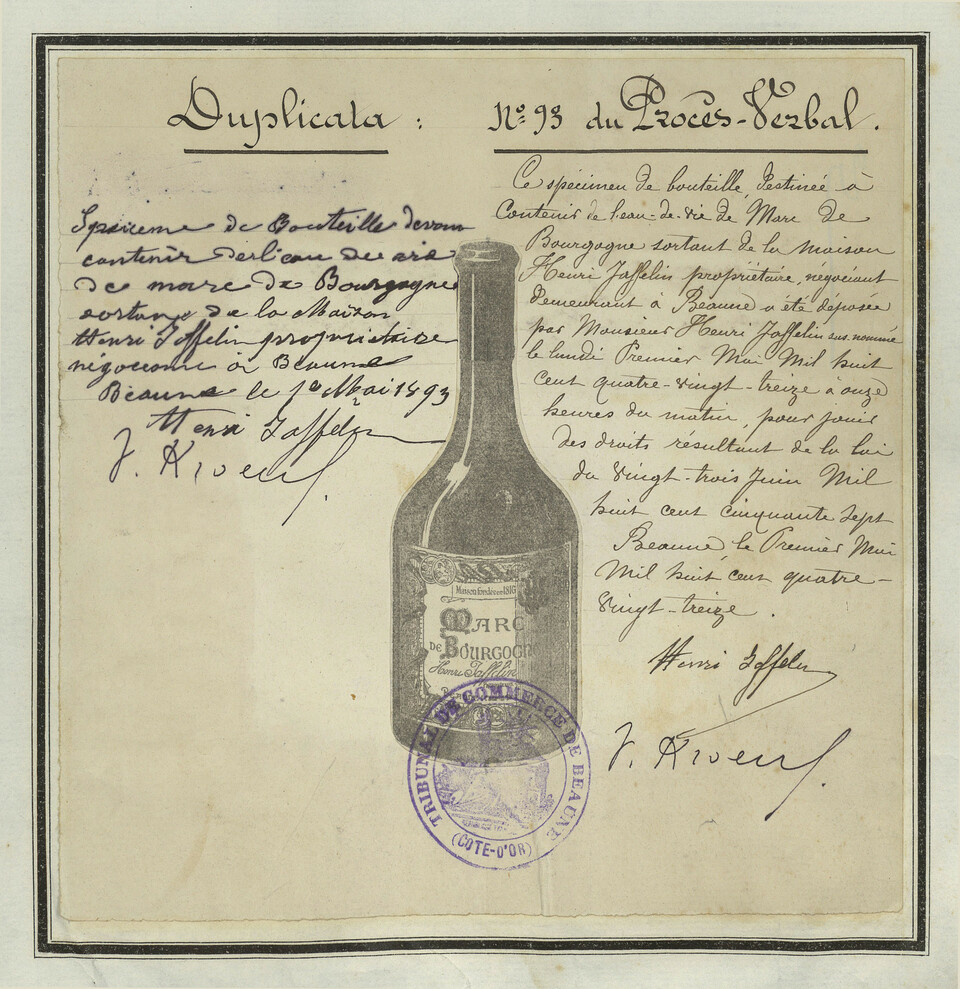 Duplicata :
N° 93 du Procès-Verbal.
Spécimene de Bouteille devan
contenir
de marc de Bourgogne
sortant de la Maison
Henri Jaffelin propriétaire
négociant à Beaune
Beaune le 1er Mai 1893
Henri Jaffelin
Ce spécimen de bouteille, destinée à
Contenir de l'eau-de-vie de Marc de
Bourgogne sortant de la maison
Henri Jaffelin propriétaire, négociant
demeurant à Beaune a été déposée
par Monsieur Henri Jaffelin sus-nommé
le lundi Premier Mai Mil huit
cent quatre-vingt-treize à onze
heures du matin, pour jouir
des droits résultant de la loi
du vingt-trois Juin Mil
huit cent cinquante sept
Beaune, le Premier Mai
Mil huit cent quatre-
vingt-treize.
Henri Jaffelin
Maison fondée en 1816
MARC
DE BOURGOGN
Henri Jaffelin
TRIBUNAL DE COMMERCE DE BEAUNE
(COTE-D'OR)